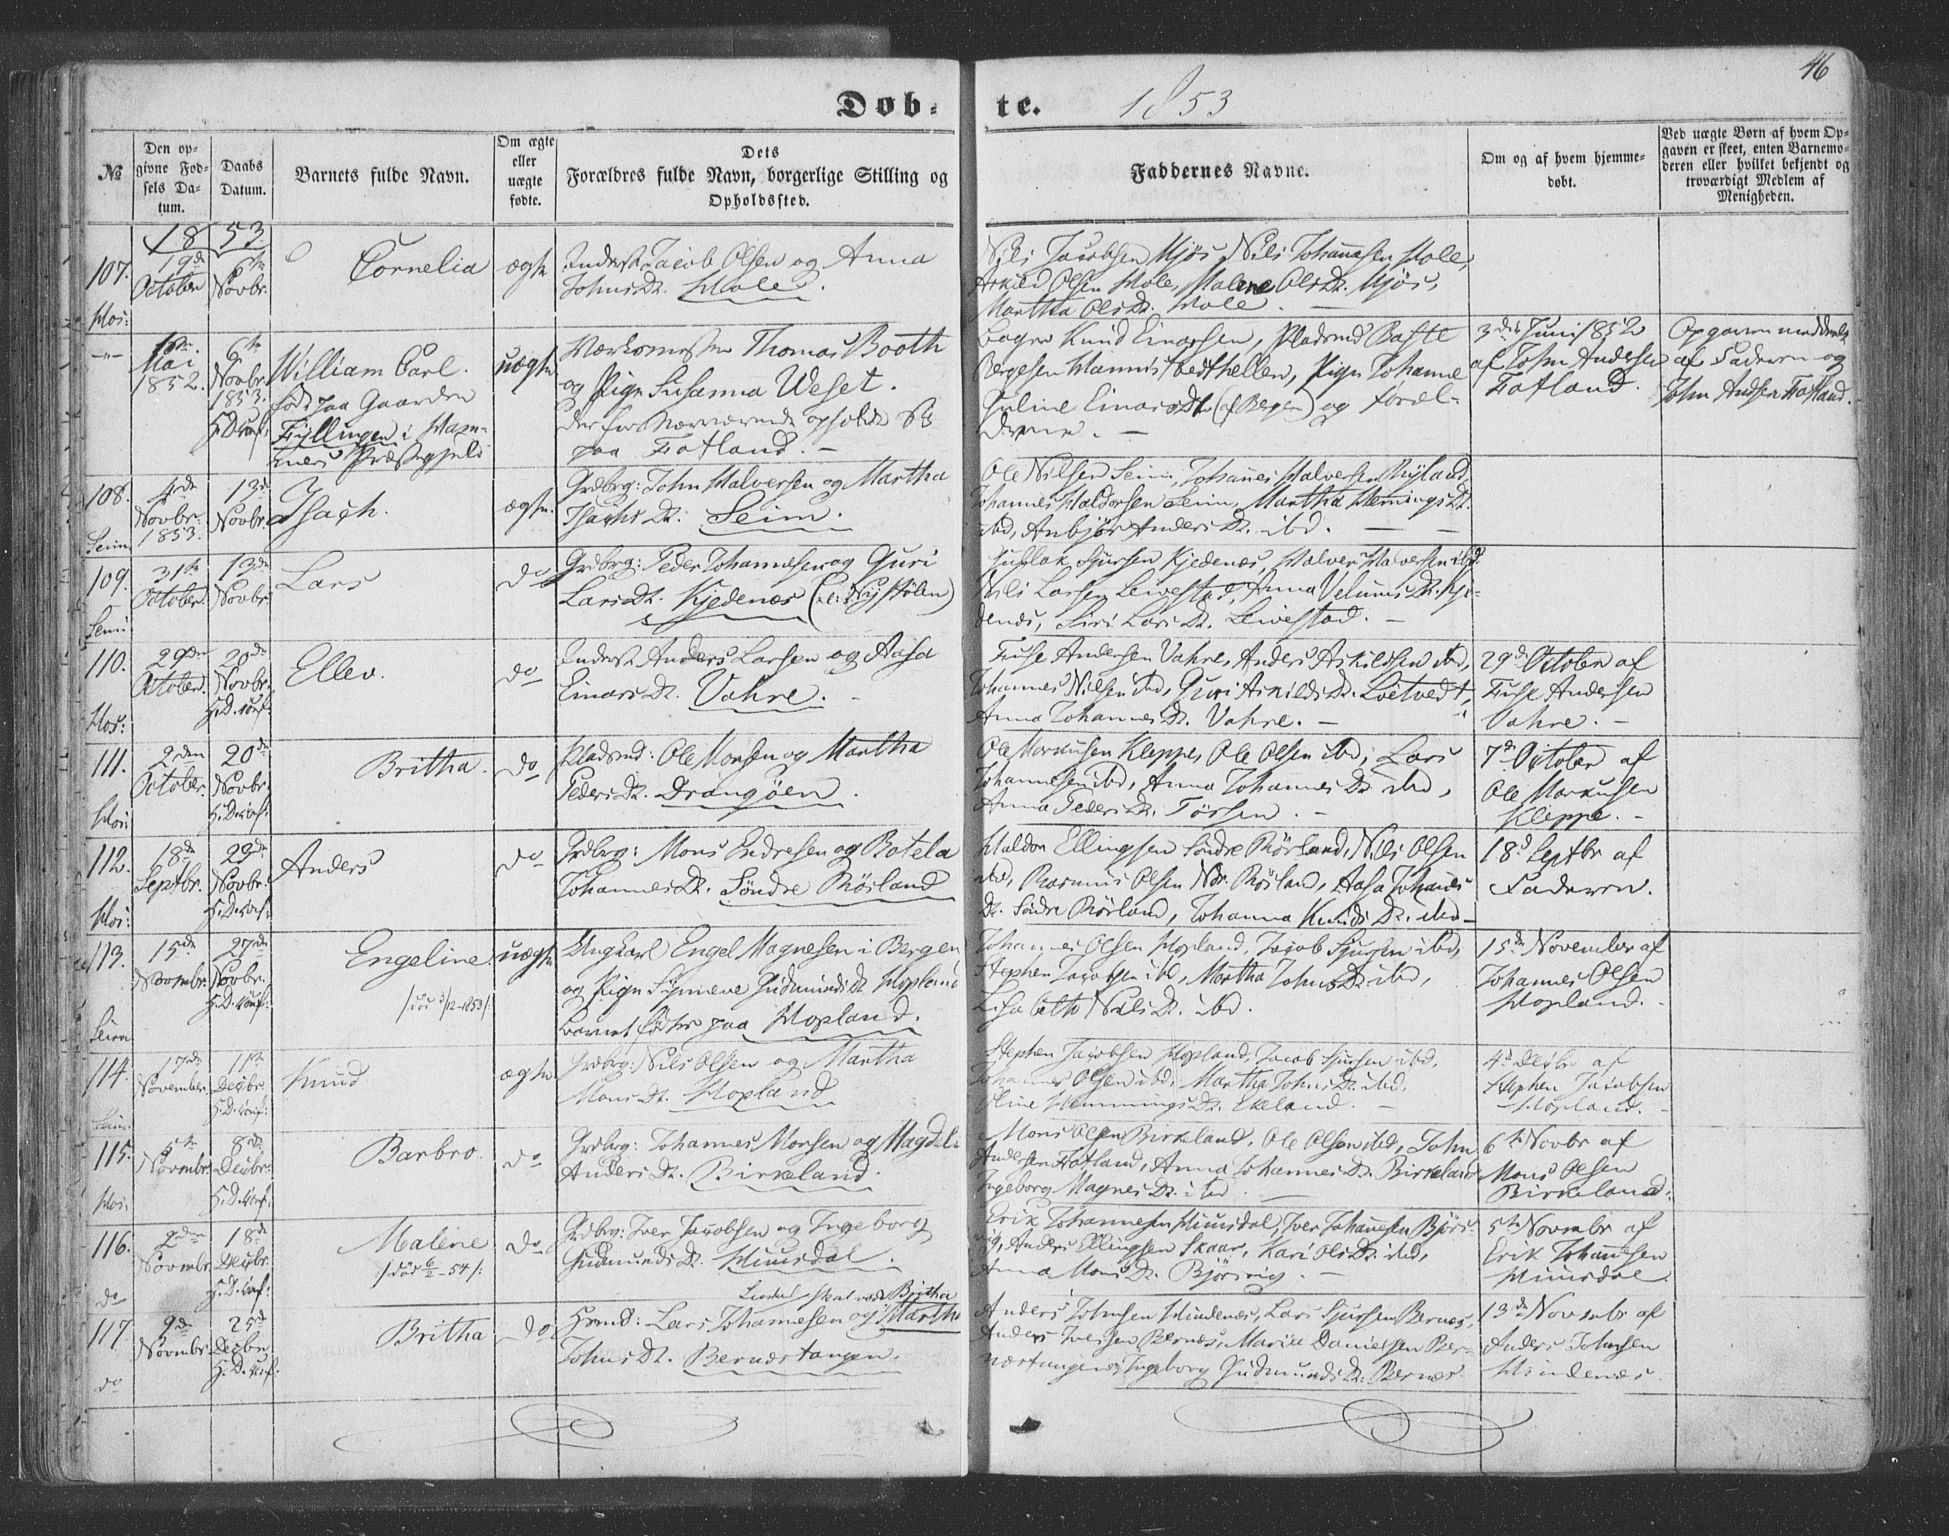 46
Døb- te. 1853
№
Den opgivne Fødsels Datum.
Daabs Datum.
Barnets fulde Navn.
Om ægte eller uægte fødte.
Dets Forældres fulde Navn, borgerlige Stilling og Opholdssted.
Faddernes Navne.
Om og af hvem hjemmedøbt.
Ved uægte Børn af hvem Opgaven er skeet, enten Barnemoderen eller hvilket bekjendt og troværdigt Medlem af Menigheden.
1853
107. 19de October 6te Novbr. Cornelia ægte
Inderst Jacob Olsen og Anna
Johns Dt. Hole.
Nils Jacobsen Mjøs, Nils Johannesen Hole,
Askild Olsen Hole, Malene Olsdt. Mjøs,
Martha Olsdt. Hole. —
Hos:
—"— Mai 1852. 6te Novbr. 1853. William Carl. uægte
født paa Gaarden
Fyllingen i Ham-
mers Præstegjeld
Værksmester Thomas Booth
og Pige Susanna Weset.
der for nærværende opholde sig
paa Fotland. —
Knud Einarsen, Pladsmd Baste
Børgesen, Pige Johanne
Juline Einarsdt. (af Bergen) og Foræl-
drene. —
3die Juni 1852
af John Andersen
Fotland.
Opgaven meddeelt
af Faderen og
John Andsen Fotland.
108. 4de Novbr. 1853. 13de Novbr. Isach. ægte
Grdbrg: John Halversen og Martha
Isachs Dt. Seim.
Ole Nilsen Seim, Johannes Halversen Ryland,
Johannes Haldorsen Seim, Martha Hemings Dt.
ibd, Anbjør Anders Dt. ibd. —
Seim
109. 31te October. 13de Novbr. Lars do
Grdbrg: Peder Johannesen og Guri
Lars Dt. Kjedenæs
Gullak Sjursen Kjedenæs, Halver Halversen ibd.
Nils Larsen Leivestad, Anna Dt. Kje-
denæs, Siri Lars Dt. Leivestad. —
Seim
110. 29de October. 20de Novbr. Ellev. do
Inderst Anders Larsen og Aasa
Einars Dt. Vahre.
Fuse Andersen Vahre, Anders Askildsen ibd,
Johannes Nilsen ibd, Guri Askilds Dt. Loitvedt,
Anna Johannes Dt. Vahre. —
29de October af
Fuse Andersen
Vahre. —
Hos:
111. 2den October. 20de Novbr. Britha. do
Pladsmd: Ole Monsen og Martha
Peders Dt. Drangøen.
Ole Markusen Kleppe, Ole Olsen ibd, Lars
Johannesen ibd, Anna Johannes Dt. ibd,
Anna Peders Dt. —
7de October af
Ole Markusen
Kleppe. —
Hos:
112. 18de Septbr. 29de Novbr. Anders do
Grdbrg: Mons Endresen og Botela
Johannes Dt. Søndre Rørland
Haldor Ellingsen Søndre Rørland, Nils Olsen
ibd, Rasmus Olsen Ndr. Rørland, Aasa Johannes
Dt. Søndre Rørland, Johanna Knuds Dt. ibd —
18de Septbr af
Faderen.
Hos:
113. 15de Novmbr. 27de Novbr. Engeline uægte
/død 3/12–1853/.
Ungkarl Engel Magnesen i Bergen
og Pige Synneve Gudmunds Dt. Hopland
Barnet fødtes paa Hopland.
Johannes Olsen Hopland, Jacob Sjursen ibd,
Stephen Jacobsen ibd, Martha Johns Dt. ibd,
Lisabeth Nils Dt. ibd.
15de November af
Johannes Olsen
Hopland.
Seim
114. 17de November. 11te Decbr. Knud ægte
Grdbrg: Nils Olsen og Martha
Mons Dt. Hopland
Stephen Jacobsen Hopland, Jacob Sjursen ibd.
Johannes Olsen ibd, Martha Johns Dt. ibd.
Oline Hemmings Dt. Ekeland. —
4de Decbr af
Stephen Jacobsen
Hopland. —
Seim
115. 5te Novmbr. 8de Decbr. Barbro. do
Grdbrg: Johannes Monsen og Magdeli
Anders Dt. Birkeland.
Mons Olsen Birkeland, Ole Olsen ibd, John
Andersen Fotland, Anna Johannes Dt. Birkeland
Ingeborg Magnes Dt. ibd.
6te Novbr af
Mons Olsen
Birkeland.
Hos:
116. 2den Novmbr. 18de Decbr. Malene do
:/død 6/2–54/:
Grdbrg: Iver Jacobsen og Ingeborg
Gudmunds Dt. Hiimsdal.
Erik Johannesen Hiimsdal, Iver Johannesen Bjørs-
vig, Anders Ellingsen Skaar, Kari Ols Dt. ibd,
Anna Mons Dt. Bjørsvig. —
5te Novmbr af
Erik Johannesen
Hiimsdal.
do
117. 9de Novmbr. 25de Decbr. Britha do
skal være Britha
Huusmd: Lars Johannesen og Martha
Johns Dt. Bernæstangen.
Anders Johnsen Hindenæs, Lars Sjursen Bernæs,
Anders Iversen Bernæs, Marie Danielsen Ber-
næstangen, Ingeborg Gudmunds Dt. Bernæs.
13de Novmbr af
Anders Johnsen
Hindenæs.
do